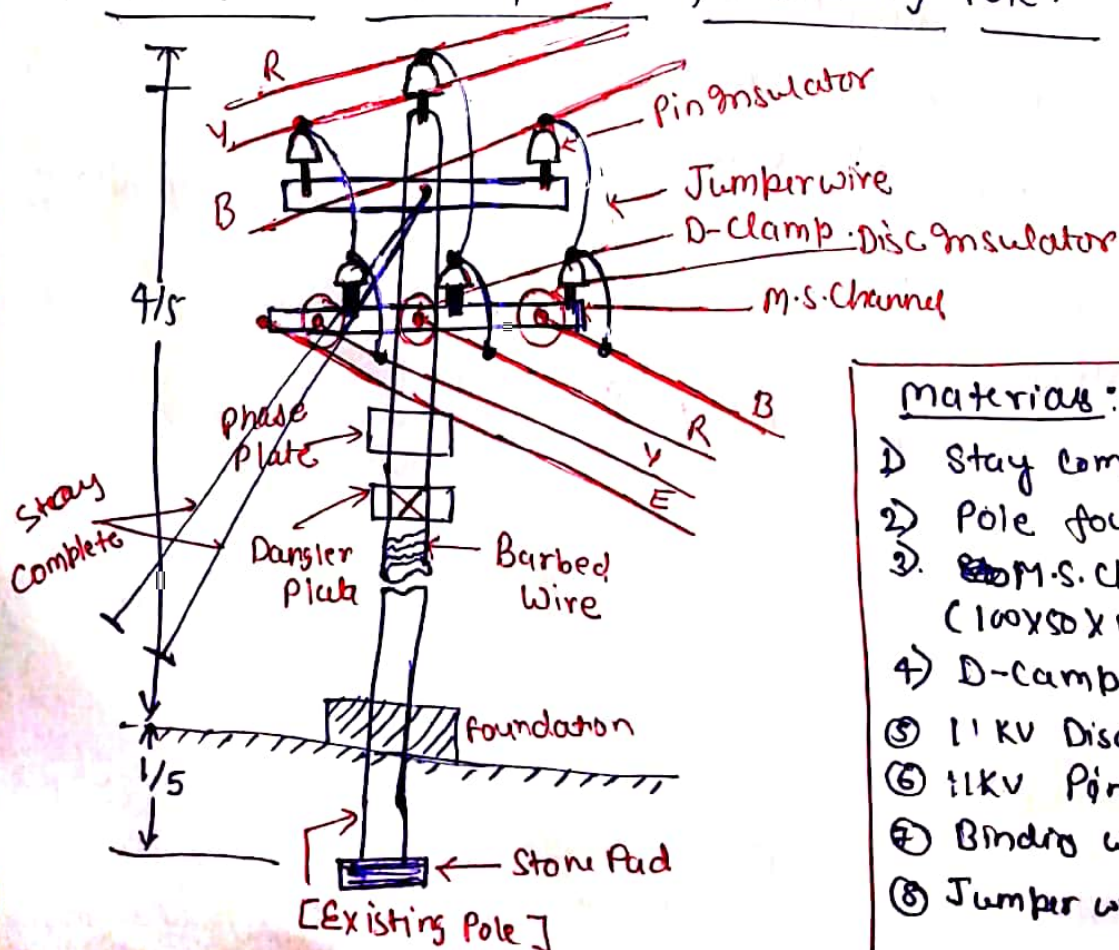 Pole:
R
Y
B
Pin Insulator
Jumper wire
D-Clamp
Disc Insulator
M.S. Channel
4/5
B
R
Y
E
Phase
Plate
Stay
Complete
Dangler
Plate
Barbed
Wire
foundation
1/5
Stone Pad
[Existing Pole]
Materials:
1) Stay Com
2) Pole fou
3. M.S.C
(100X50X
4) D-Camp
⑤ 11 KV Disc
⑥ 11KV Pin
⑦ Binding w
⑧ Jumper w